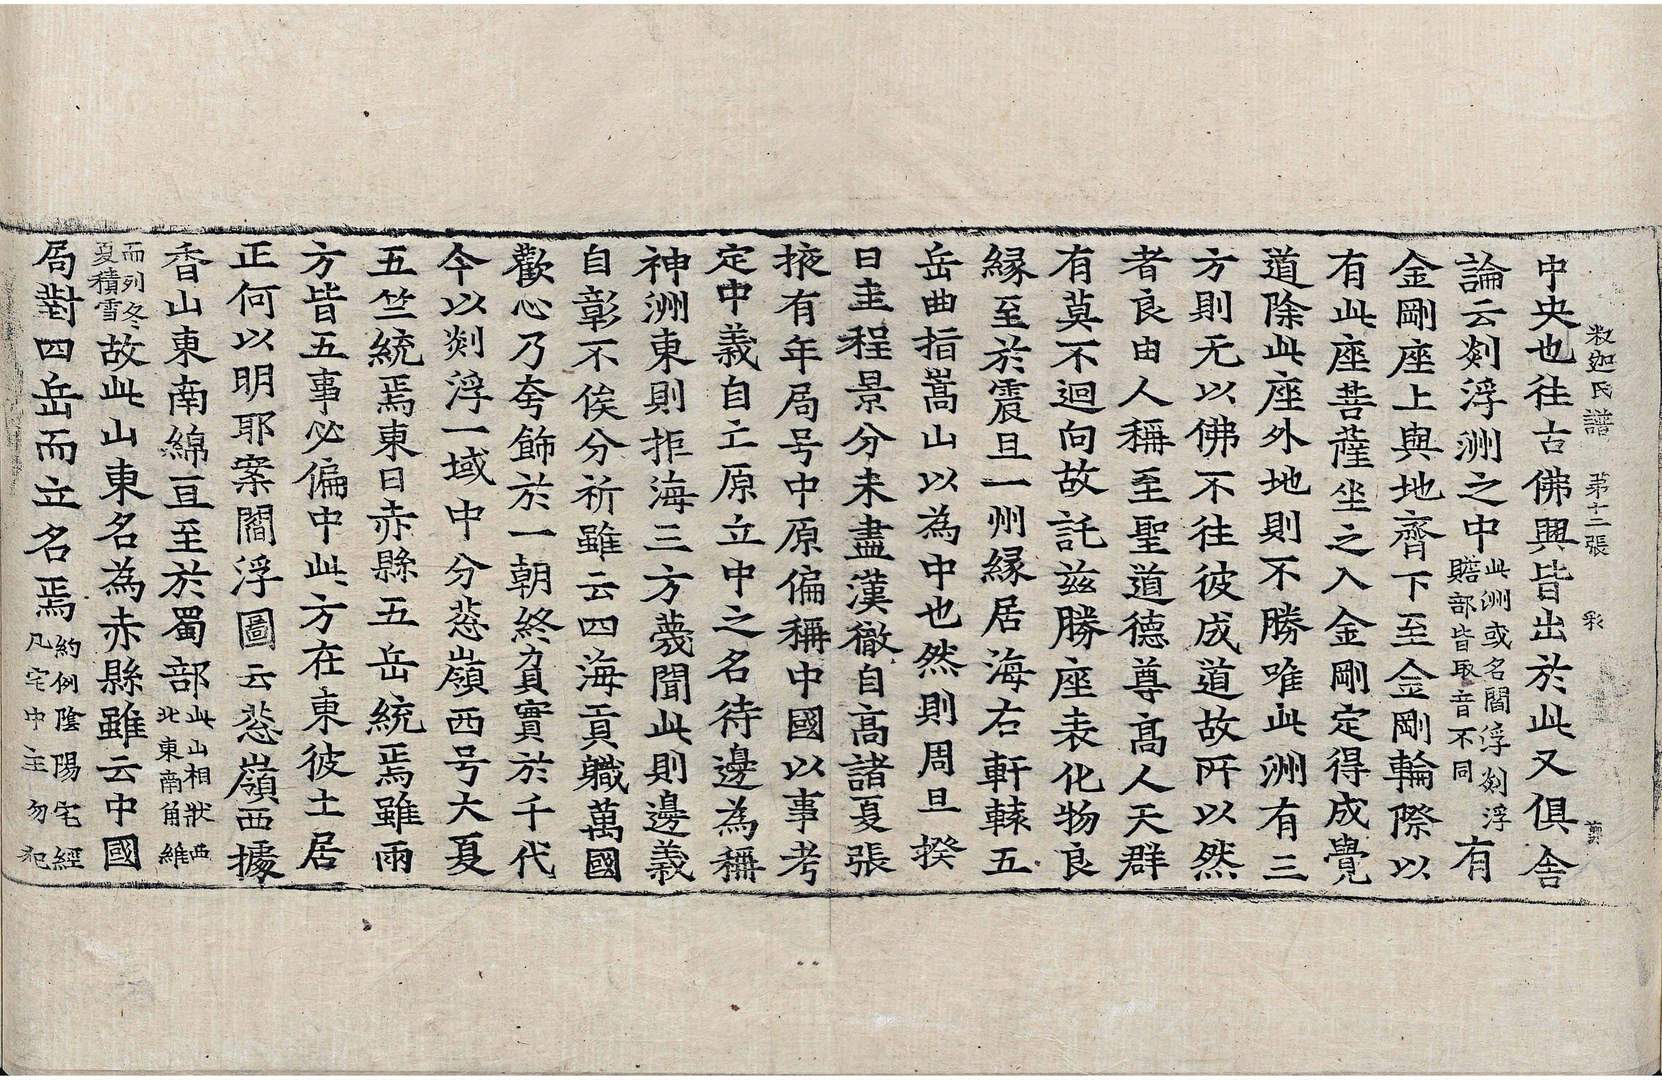 釋迦氏譜 第十二張 彩
中央也往古佛興皆出於此又俱舍
論云剡浮洲之中此洲或名閻浮剡浮贍部皆取音不同有
金剛座上與地齊下至金剛輪際以
有此座菩薩坐之入金剛定得成覺
道除此座外地則不勝唯此洲有三
方則无以佛不往彼成道故所以然
者良由人稱至聖道德尊高人天群
有莫不迴向故託兹勝座表化物良
緣至於震旦一州緣居海右軒轅五
岳曲指嵩山以為中也然則周旦揆
日圭程景分未盡漢徹自高諸夏張
掖有年局号中原偏稱中國以事考
定中義自亡原立中之名待邊為稱
神洲東則拒海三方蔑聞此則邊義
自彰不俟分析雖云四海貢職萬國
歡心乃夸飾於一朝終負實於千代
今以剡浮一域中分葱嶺西号大夏
五竺統焉東曰赤縣五岳統焉雖兩
方皆五事必偏中此方在東彼土居
正何以明耶案閻浮圖云葱嶺西據
香山東南綿亘至於蜀部此山相狀西北東南角維
而列冬夏積雪故此山東名為赤縣雖云中國
局對四岳而立名焉約例陰陽宅經凡宅中主勿犯